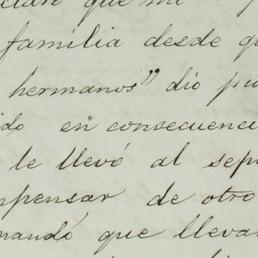 que
familia desde
hermanos" dió
en consecuenci
le llevó al sep
pensar de otro
mandó que lleva